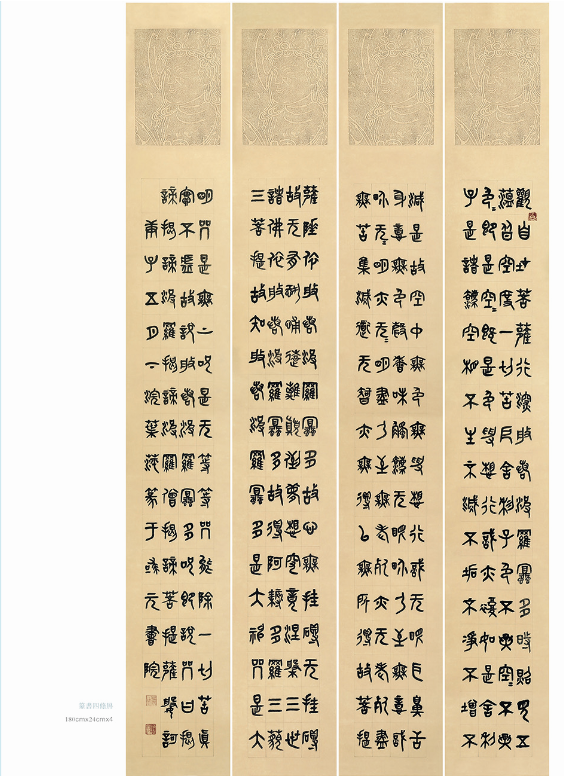 觀自在菩薩行深般若波羅蜜多時照見五
蘊皆空度一切苦厄舍利子色不異空〻不異
色〻即是空〻即是色受想行識亦復如是舍利
子是諸法空相不生不滅不垢不淨不增不
減是故空中無色無受想行識无眼耳鼻舌
身意無色聲香味觸法无眼界乃至無意識
界无〻明亦无〻明盡乃至無老死亦无老死盡
無苦集滅道无智亦無得以無所得故菩提
薩埵依般若波羅蜜多故心無挂礙无挂礙
故无有恐怖遠離顛倒夢想究竟涅槃三世
諸佛依般若波羅蜜多故得阿耨多羅三藐
三菩提故知般若波羅蜜多是大神咒是大
明咒是無上咒是无等等咒能除一切苦真
實不虛故說般若波羅蜜多咒即說咒曰揭
諦揭諦波羅揭諦波羅僧揭諦菩提薩婆訶
子五月一浣葉篆于元書院
篆書四條屏